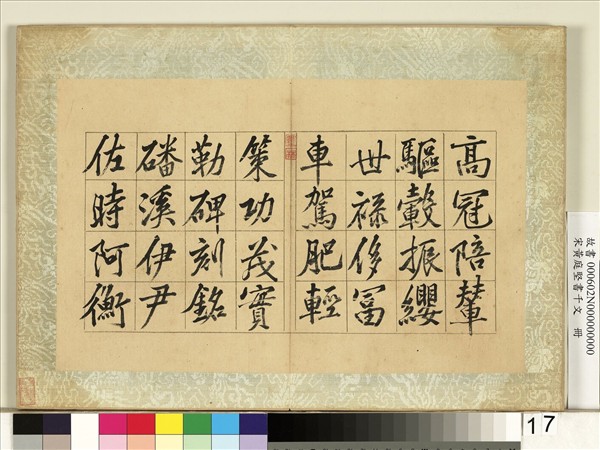 高冠陪輦
驅轂振纓
世祿侈富
車駕肥輕
策功茂實
勒碑刻銘
磻溪伊尹
佐時阿衡
故書 000602N000000000
宋黃庭堅書千文 冊
17